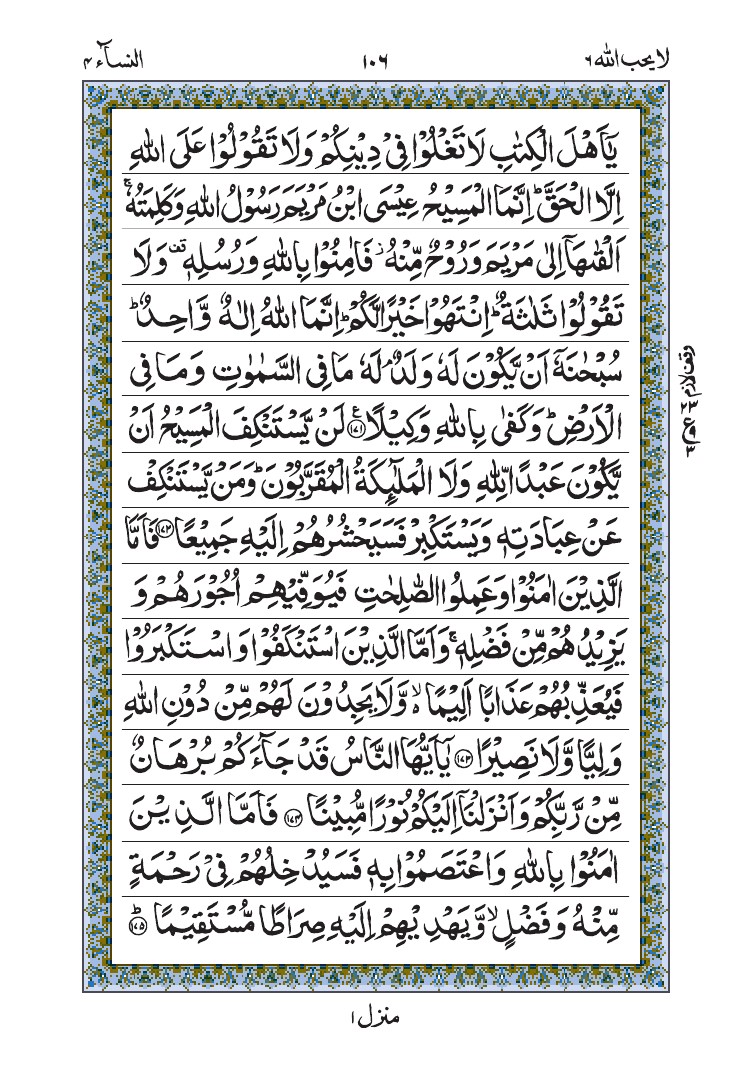 لا یحب الله ۶
۱۰۶
النسآء ۴
يٰۤاَهْلَ الْكِتٰبِ لَا تَغْلُوْا فِيْ دِيْنِكُمْ وَلَا تَقُوْلُوْا عَلَى اللّٰهِ
اِلَّا الْحَقَّ ؕ اِنَّمَا الْمَسِيْحُ عِيْسَى ابْنُ مَرْيَمَ رَسُوْلُ اللّٰهِ وَكَلِمَتُهٗ ۚ
اَلْقٰىهَاۤ اِلٰى مَرْيَمَ وَرُوْحٌ مِّنْهُ ؗ فَاٰمِنُوْا بِاللّٰهِ وَرُسُلِهٖ ۫ۛ وَلَا
تَقُوْلُوْا ثَلٰثَةٌ ؕ اِنْتَهُوْا خَيْرًا لَّكُمْ ؕ اِنَّمَا اللّٰهُ اِلٰهٌ وَّاحِدٌ ؕ
سُبْحٰنَهٗۤ اَنْ يَّكُوْنَ لَهٗ وَلَدٌ ۘ لَهٗ مَا فِي السَّمٰوٰتِ وَمَا فِي
الْاَرْضِ ؕ وَكَفٰى بِاللّٰهِ وَكِيْلًا ۧ ﴿۱۷۱﴾ لَنْ يَّسْتَنْكِفَ الْمَسِيْحُ اَنْ
يَّكُوْنَ عَبْدًا لِّلّٰهِ وَلَا الْمَلٰٓئِكَةُ الْمُقَرَّبُوْنَ ؕ وَمَنْ يَّسْتَنْكِفْ
عَنْ عِبَادَتِهٖ وَيَسْتَكْبِرْ فَسَيَحْشُرُهُمْ اِلَيْهِ جَمِيْعًا ﴿۱۷۲﴾ فَاَمَّا
الَّذِيْنَ اٰمَنُوْا وَعَمِلُوا الصّٰلِحٰتِ فَيُوَفِّيْهِمْ اُجُوْرَهُمْ وَ
يَزِيْدُهُمْ مِّنْ فَضْلِهٖ ۚ وَاَمَّا الَّذِيْنَ اسْتَنْكَفُوْا وَاسْتَكْبَرُوْا
فَيُعَذِّبُهُمْ عَذَابًا اَلِيْمًا ۙ۬ وَّلَا يَجِدُوْنَ لَهُمْ مِّنْ دُوْنِ اللّٰهِ
وَلِيًّا وَّلَا نَصِيْرًا ﴿۱۷۳﴾ يٰۤاَيُّهَا النَّاسُ قَدْ جَآءَكُمْ بُرْهَانٌ
مِّنْ رَّبِّكُمْ وَاَنْزَلْنَاۤ اِلَيْكُمْ نُوْرًا مُّبِيْنًا ﴿۱۷۴﴾ فَاَمَّا الَّذِيْنَ
اٰمَنُوْا بِاللّٰهِ وَاعْتَصَمُوْا بِهٖ فَسَيُدْخِلُهُمْ فِيْ رَحْمَةٍ
مِّنْهُ وَفَضْلٍ ۙ وَّيَهْدِيْهِمْ اِلَيْهِ صِرَاطًا مُّسْتَقِيْمًا ؕ ﴿۱۷۵﴾
وقف لازم
منزل ۱